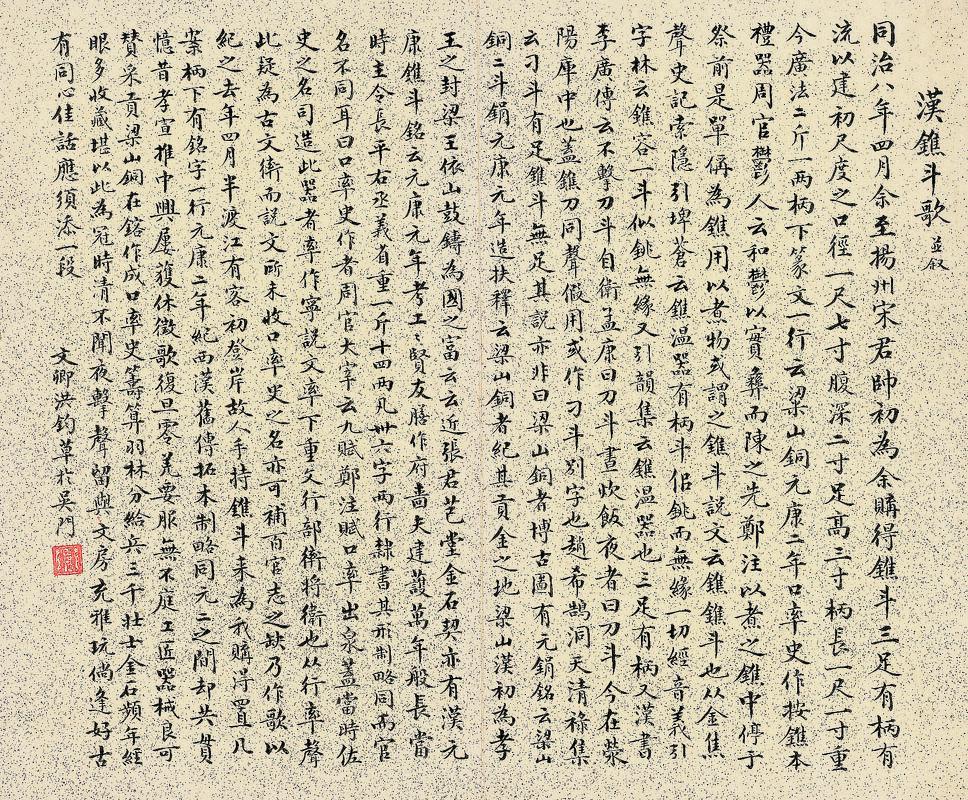 漢鐎斗歌 並叙
同治八年四月余至揚州宋君帥初為余購得鐎斗三足有柄有
流以建初尺度之口徑一尺七寸腹深二寸足高三寸柄長一尺一寸重
今廣法二斤一两柄下篆文一行云梁山銅元康二年口率史作按鐎本
禮器周官鬱人云和鬱以實彝而陳之先鄭注以煮之鐎中停于
祭前是單偁為鐎用以煮物或謂之鐎斗說文云鐎鐎斗也从金焦
聲史記索隱引埤蒼云鐎温器有柄斗佀銚而無緣一切經音義引
字林云鐎容一斗似銚無緣又引韻集云鐎温器也三足有柄又漢書
李廣傳云不擊刀斗自衛孟康曰刀斗晝炊飯夜者曰刀斗今在滎
陽庫中也蓋鐎刀同聲假用或作刁斗别字也趙希鵠洞天清祿集
云刁斗有足鐎斗無足其説亦非曰梁山銅者博古圖有元鋗銘云梁山
銅二斗鋗元康元年造扶釋云梁山銅者紀其貢金之地梁山漢初為孝
王之封梁王依山鼓鑄為國之富云云近張君芑堂金石契亦有漢元
康鐎斗銘云元康元年考工〻賢友膳作府嗇夫建護萬年般長當
時主令長平右丞義省重一斤十四兩凡卅六字两行隸書其形制略同而官
名不同耳曰口率史作者周官大宰云九賦鄭注賦口率出泉蓋當時佐
史之名司造此器者率作寧説文率下重文行部衛將衛也从行率聲
此疑為古文衛而説文所未收口率史之名亦可補百官志之缺乃作歌以
紀之去年四月半渡江有客初登岸故人手持鐎斗来為我購得置几
案柄下有銘字一行元康二年紀西漢舊傳拓本制略同元二之間却共貫
憶昔孝宣推中興屢獲休徵歌復旦零羌要服無不庭工匠器械良可
賛采貢梁山銅在鎔作成口率史籌算羽林分給兵三千壯士金石頻年經
眼多收藏堪以此為冠時清不聞夜擊聲留與文房充雅玩倘逢好古
有同心佳話應須添一段
文卿洪鈞草於吴門